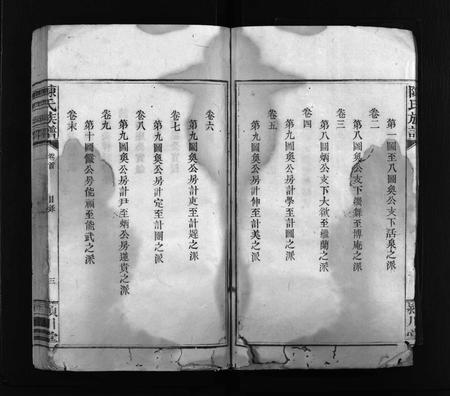 陳氏族譜
第一圖至八圖奐公支下活泉之派
卷二
第八圖奐公支下瓚舞至博庵之派
卷三
第八圖炳公支下大欲至維蘭之派
卷四
第九圖奐公房計學至計圖之派
卷五
第九圖奐公房計伸至計美之派
卷六
第九圖奐公房計吏至計遲之派
卷七
第九圖奐公房計定至計圖之派
卷八
第九圖奐公房計尹至炳公房連貴之派
卷九
第十圖儼公房能福至能武之派
卷末
陳氏族譜
卷首
目錄
三
潁川堂